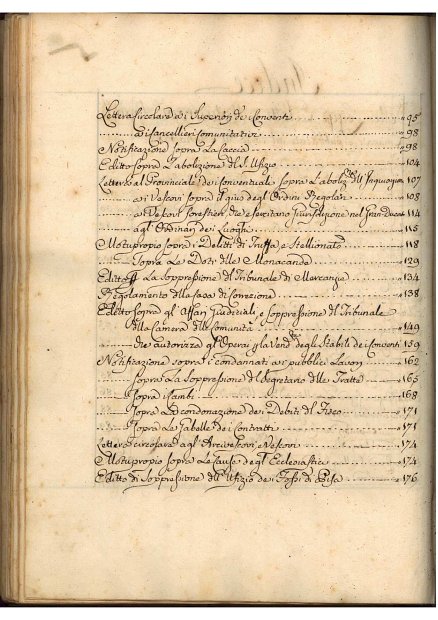 Lettera Circolare ai Superiori de Conventi 95
ai Cancellieri Comunitativi 98
Notificazione sopra La Caccia 98
Editto sopra L'abolizione del S. Ufizio 104
Lettera al Provinciale dei Conventuali sopra L'aboliz.ne dell'Inquisizione 107
ai Vescovi sopra il gius degl Ordini Regolari 108
ai Vescovi forestieri che esercitano giurisdizione nel Gran Ducato 114
agl Ordinari dei Luoghi 115
Motuproprio sopra i Delitti di Truffa e Stellionato 118
sopra Le Doti delle Monacande 129
Editto La soppressione del Tribunale di Mercanzia 134
Regolamento della Casa di Correzione 138
Editto sopra gl'Affari Judiciali, e soppressione del Tribunale
della Camera delle Comunità 149
che autorizza gl'Operai p la Vendita degli Stabili dei Conventi 159
Notificazione sopra i condannati ai pubblici Lavori 162
sopra La soppressione del Segretario delle Tratte 165
sopra i Cambi 168
sopra La Condonazione dei Debiti del Fisco 171
sopra Le Gabelle dei Contratti 171
Lettera circolare agl'Arcivescovi, e Vescovi 174
Motupropio sopra Le Cause degl'Ecclesiastici 174
Editto di Soppressione dell'Ufizio dei Fossi di Pisa 176